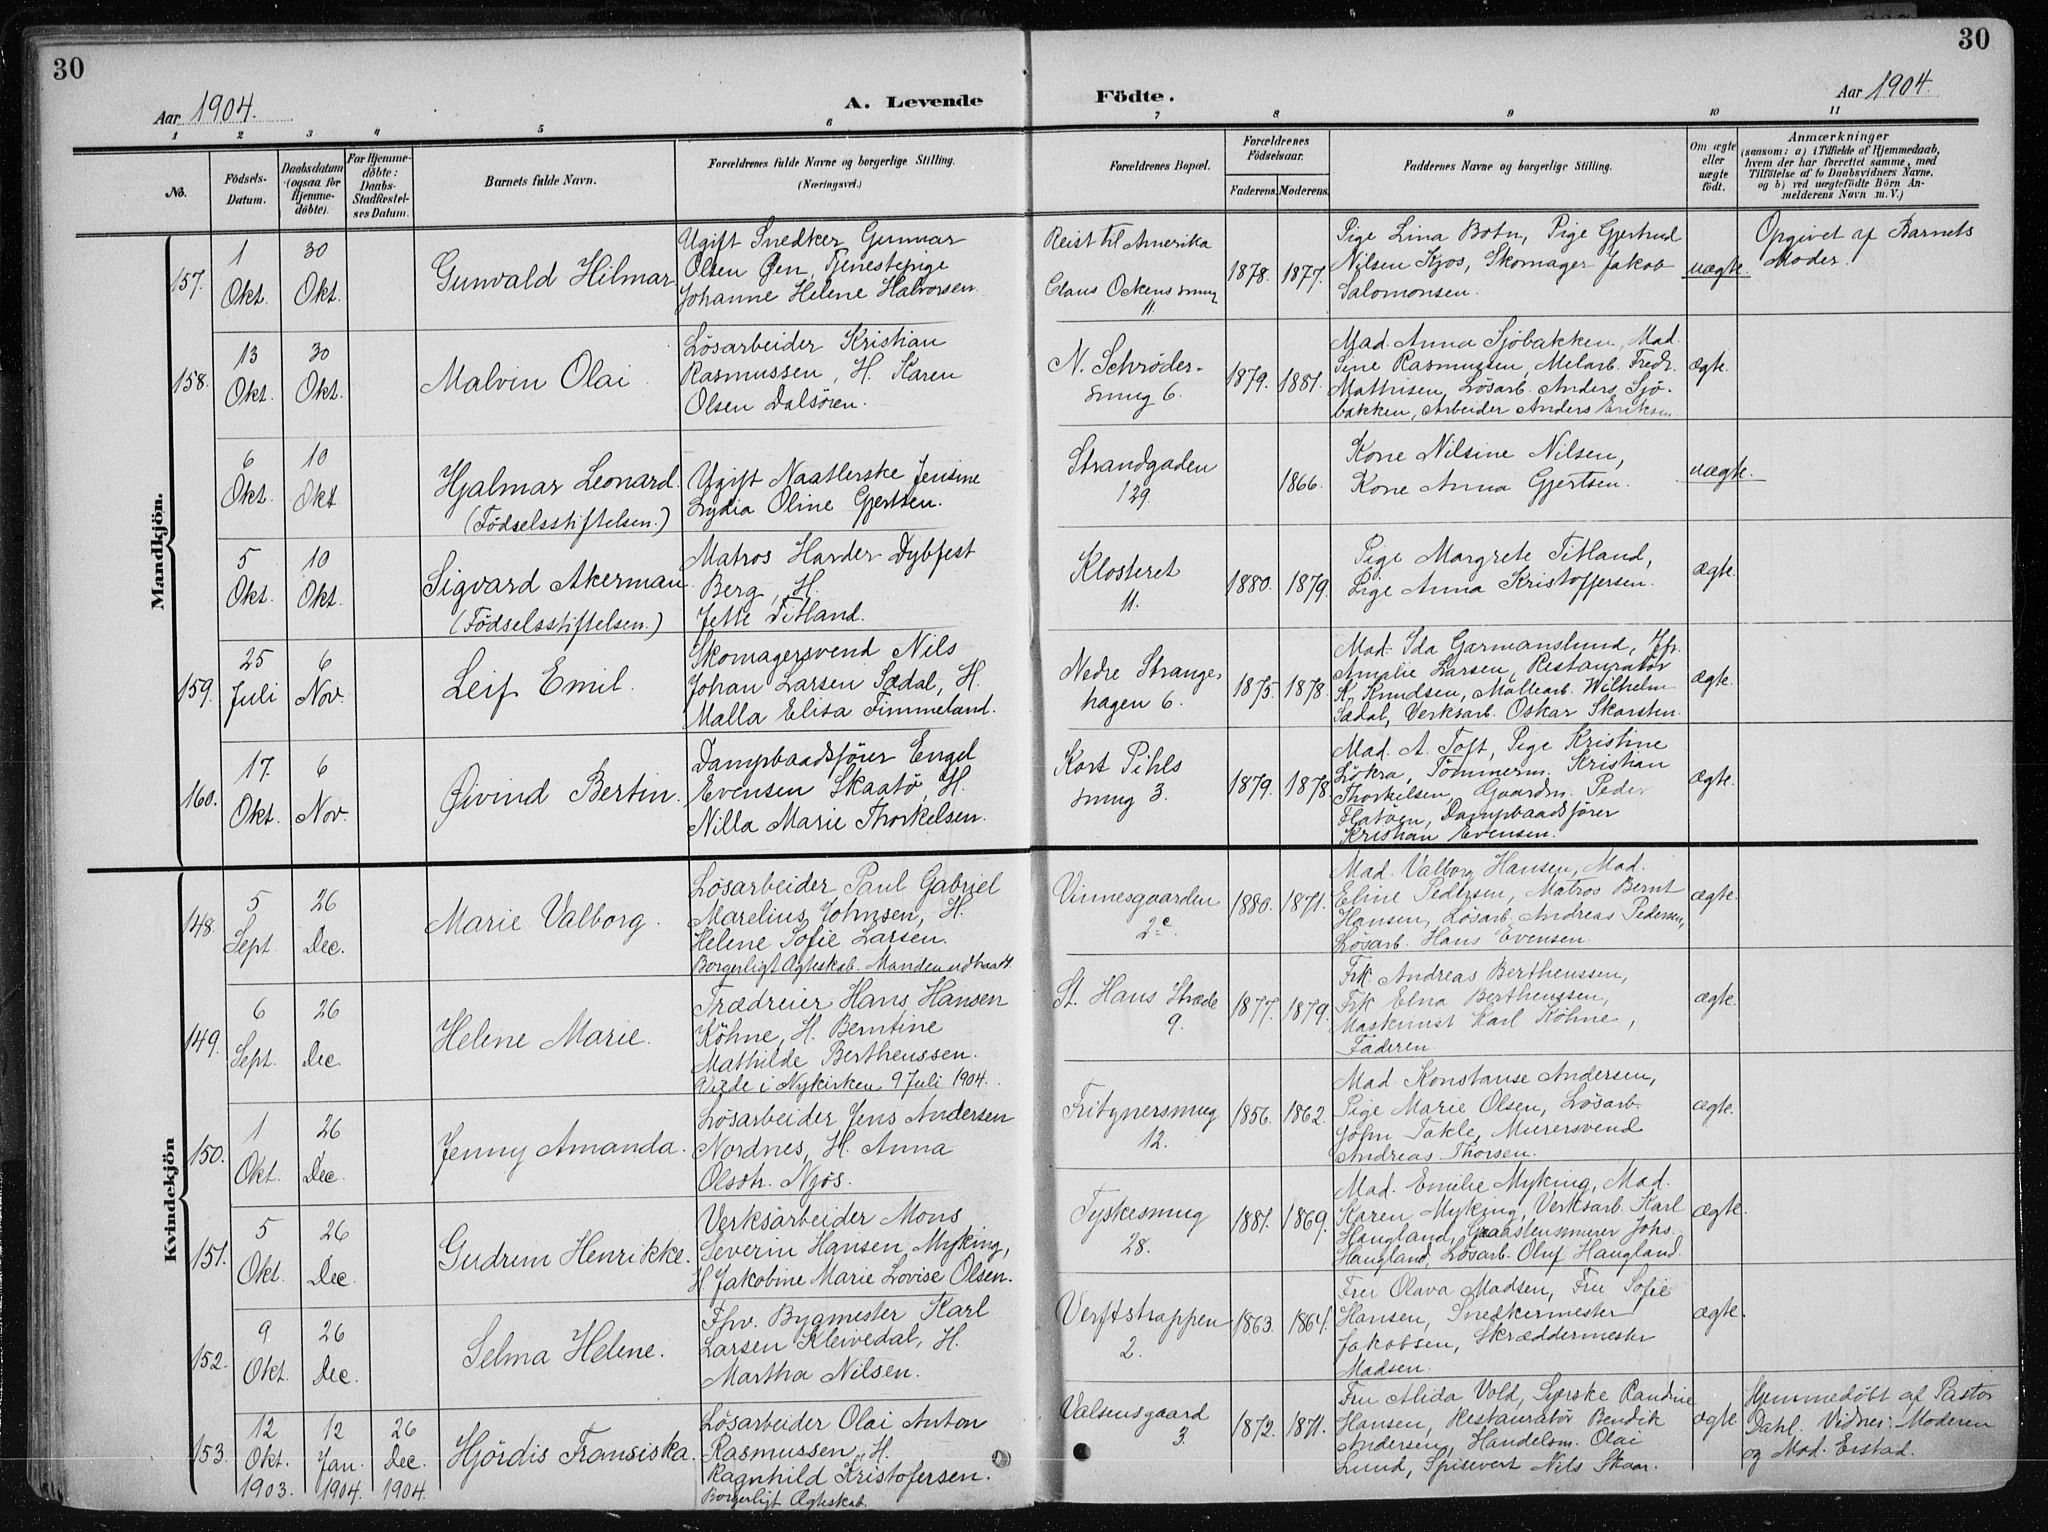 30
30
Aar 1904.
A. Levende
Födte.
Aar 1904.
1 2 3 4 5 6 7 8 9 10 11
No.
Födsels-
Datum.
Daabsdatum
(ogsaa for
Hjemme-
döbte).
For Hjemme-
döbte:
Daabs-
Stadfæstel-
ses Datum.
Barnets fulde Navn.
Forældrenes fulde Navne og borgerlige Stilling.
(Næringsvei.)
Forældrenes Bopæl.
Forældrenes
Födselsaar.
Faderens. Moderens.
Faddernes Navne og borgerlige Stilling.
Om ægte
eller
uægte
födt.
Anmærkninger
(saasom: a) i Tilfælde af Hjemmedaab,
hvem der har forrettet samme, med
Tilföielse af to Daabsvidners Navne,
og b) ved uægtefödte Börn An-
melderens Navn m. V.)
Mandkjön.
157.
1
Okt.
30
Okt.
Gunvald Hilmar
Ugift Snedker Gunnar
Olsen Øen, Tjenestepige
Johanne Helene Halvorsen.
Reist til Amerika
Claus Ockens smug
11.
1878. 1877.
Pige Lina Botn, Pige Gjertrud
Nilsen Kjos, Skomager Jakob
Salomonsen.
uægte.
Opgivet af Barnets
Moder.
158.
13
Okt.
30
Okt.
Malvin Olai
Lösarbeider Kristian
Rasmussen, H. Karen
Olsen Dalsören.
N. Schrøder-
smug 6.
1879. 1881.
Mad. Anna Sjöbakken, Mad.
Sine Rasmussen, Melarb. Fredr.
Mathisen, Lösarb. Anders Sjö-
bakken, Arbeider Anders Eriksen.
ægte.
6
Okt.
10
Okt
Hjalmar Leonard.
(Födselsstiftelsen.)
Ugift Naatlerske Jensine
Lydia Oline Gjertsen.
Strandgaden
129.
1866.
Kone Nilsine Nilsen,
Kone Anna Gjertsen.
uægte.
5
Okt.
10
Okt.
Sigvard Akerman.
(Födselsstiftelsen.)
Matros Harder Dybfest
Berg, H.
Jette Titland.
Klosteret
11.
1880. 1879.
Pige Margrete Titland,
Pige Anna Kristoffersen.
ægte.
159.
25
Juli
6
Nov.
Leif Emil.
Skomagersvend Nils
Johan Larsen Sædal, H.
Malla Elisa Fimmeland.
Nedre Strange-
hagen 6.
1875. 1878.
Mad. Ida Garmanslund, Jfr.
Amalie Larsen, Restauratör
K. Knudsen, Möllearb. Wilhelm
Sædal, Verksarb. Oskar Skarsten.
ægte.
160.
17.
Okt.
6
Nov.
Øivind Bertin.
Dampbaadsförer Engel
Evensen Skaatö, H.
Nilla Marie Thorkelsen.
Kort Pihls
smug 3.
1879. 1878.
Mad. A. Toft, Pige Kristine
Lökra, Tömmerm. Kristian
Thorkelsen, Gaardm. Peder
Flatöen, Dampbaadsförer
Kristian Evensen.
ægte.
Kvindekjön
148.
5
Sept.
26
Dec.
Marie Valborg.
Lösarbeider Paul Gabriel
Marelius Johnsen, H.
Helene Sofie Larsen.
Borgerligt Ægteskab. Manden udtraadt.
Vinnesgaarden
2c.
1880. 1871.
Mad. Valborg Hansen, Mad.
Eline Pedersen, Matros Bernt
Hansen, Lösarb. Andreas Pedersen,
Lösarb. Hans Evensen.
ægte.
149.
6
Sept.
26
Dec
Helene Marie.
Trædreier Hans Hansen
Köhne, H. Berntine
Mathilde Bertheussen.
Viede i Nykirken 9 Juli 1904.
St. Hans Stræde
9.
1877. 1879.
Frk. Andreas Bertheussen,
Frk Elna Bertheussen,
Maskinist Karl Köhne,
Faderen.
ægte.
150.
1
Okt.
26
Dec.
Jenny Amanda.
Lösarbeider Jens Andersen
Nordnes, H. Anna
Olsdtr. Njös.
Fritznersmug
12.
1856. 1862.
Mad. Konstanse Andersen,
Pige Marie Olsen, Lösarb.
John Takle, Murersvend
Andreas Thorsen.
ægte.
151.
5
Okt.
26
Dec.
Gudrun Henrikke.
Verksarbeider Mons
Severin Hansen Myking,
H. Jakobine Marie Lovise Olsen.
Tyskesmug
28.
1881. 1869.
Mad. Emilie Myking, Mad.
Karen Myking, Verksarb. Karl
Haugland, Graastensmurer Johs.
Haugland, Lösarb. Oluf Haugland.
ægte.
152.
9
Okt.
26
Dec.
Selma Helene.
Fhv. Bygmester Karl
Larsen Kleivedal, H.
Martha Nilsen.
Verftstrappen
2.
1863. 1864.
Fru Olava Madsen, Fru Sofie
Hansen, Snedkermester
Jakobsen, Skræddermester
Madsen.
ægte.
153.
12
Okt.
1903.
12
Jan.
1904.
26
Dec.
1904.
Hjördis Fransiska.
Lösarbeider Olai Anton
Rasmussen, H.
Ragnhild Kristofersen.
Borgerligt Ægteskab.
Valsensgaard
3.
1872. 1871.
Fru Alida Vold, Syerske Randine
Hansen, Restauratör Bendik
Andersen, Handelsm. Olai
Lund, Spisevert Nils Skaar.
ægte
Hjemmedöbt af Pastor
Dahl. Vidner: Moderen
og Mad. Erstad.